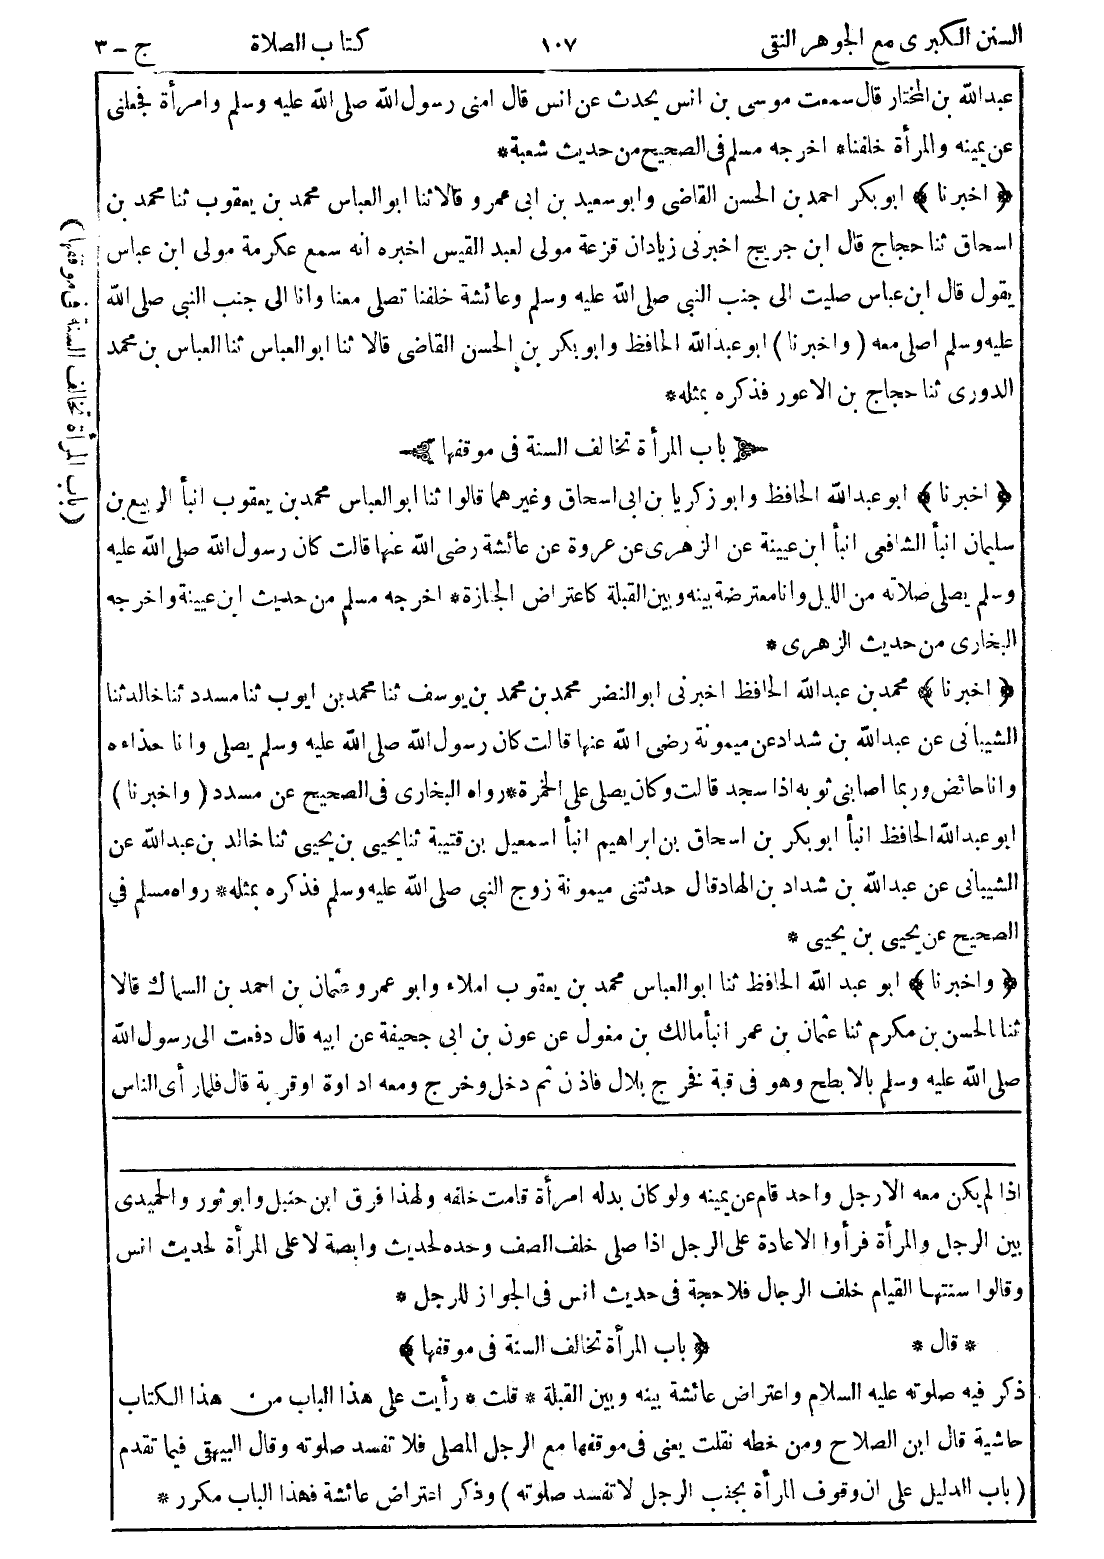 السنن الكبرى مع الجوهر النقى ١٠٧ كتاب الصلاة ج - ٣
عبدالله بن المختار قال سمعت موسى بن انس يحدث عن انس قال امنى رسول الله صلى الله عليه وسلم وامرأة فجعلنى
عن يمينه والمرأة خلفنا* اخرجه مسلم فى الصحيح من حديث شعبة*
﴿ اخبرنا ﴾ ابوبكر احمد بن الحسن القاضى وابو سعيد بن ابى عمرو قالا ثنا ابوالعباس محمد بن يعقوب ثنا محمد بن
اسحاق ثنا حجاج قال ابن جريج اخبرنى زياد ان قزعة مولى لعبد القيس اخبره انه سمع عكرمة مولى ابن عباس
يقول قال ابن عباس صليت الى جنب النبى صلى الله عليه وسلم وعائشة خلفنا تصلى معنا وانا الى جنب النبى صلى الله
عليه وسلم اصلى معه ( واخبرنا ) ابو عبدالله الحافظ وابو بكر بن الحسن القاضى قالا ثنا ابوالعباس ثنا العباس بن محمد
الدورى ثنا حجاج بن الاعور فذكره بمثله*
باب المرأة تخالف السنة فى موقفها
( باب المرأة تخالف السنة فى موقفها )
﴿ اخبرنا ﴾ ابو عبدالله الحافظ وابو زكريا بن ابى اسحاق وغيرهما قالوا ثنا ابوالعباس محمد بن يعقوب انبأ الربيع بن
سليمان انبأ الشافعى انبأ ابن عيينة عن الزهرى عن عروة عن عائشة رضى الله عنها قالت كان رسول الله صلى الله عليه
وسلم يصلى صلاته من الليل وانا معترضة بينه وبين القبلة كاعتراض الجنازة* اخرجه مسلم من حديث ابن عيينة واخرجه
البخارى من حديث الزهرى *
﴿ اخبرنا ﴾ محمد بن عبدالله الحافظ اخبرنى ابو النضر محمد بن محمد بن يوسف ثنا محمد بن ايوب ثنا مسدد ثنا خالد ثنا
الشيبانى عن عبدالله بن شداد عن ميمونة رضى الله عنها قالت كان رسول الله صلى الله عليه وسلم يصلى وانا حذاءه
وانا حائض وربما اصابنى ثوبه اذا سجد قالت وكان يصلى على الخمرة* رواه البخارى فى الصحيح عن مسدد ( واخبرنا )
ابو عبدالله الحافظ انبأ ابو بكر بن اسحاق بن ابراهيم انبأ اسمعيل بن قتيبة ثنا يحيى بن يحيى ثنا خالد بن عبدالله عن
الشيبانى عن عبدالله بن شداد بن الهاد قال حدثتنى ميمونة زوج النبى صلى الله عليه وسلم فذكره بمثله* رواه مسلم في
الصحيح عن يحيى بن يحيى *
﴿ واخبرنا ﴾ ابو عبد الله الحافظ ثنا ابوالعباس محمد بن يعقوب املاء وابو عمرو عثمان بن احمد بن السماك قالا
ثنا الحسن بن مكرم ثنا عثمان بن عمر انبأ مالك بن مغول عن عون بن ابى جحيفة عن ابيه قال دفعت الى رسول الله
صلى الله عليه وسلم بالابطح وهو فى قبة فخرج بلال فاذن ثم دخل وخرج ومعه اداوة او قربة قال فلما رأى الناس
اذا لم يكن معه الا رجل واحد قام عن يمينه ولو كان بدله امرأة قامت خلفه ولهذا فرق ابن حنبل وابو ثور والحميدى
بين الرجل والمرأة فرأوا الاعادة على الرجل اذا صلى خلف الصف وحده لحديث وابصة لا على المرأة لحديث انس
وقالوا سنتها القيام خلف الرجال فلا حجة فى حديث انس فى الجواز للرجل *
* قال * ﴿ باب المرأة تخالف السنة فى موقفها ﴾
ذكر فيه صلوته عليه السلام واعتراض عائشة بينه وبين القبلة * قلت * رأيت على هذا الباب من هذا الكتاب
حاشية قال ابن الصلاح ومن خطه نقلت يعنى فى موقفها مع الرجل المصلى فلا تفسد صلوته وقال البيهقى فيما تقدم
( باب الدليل على ان وقوف المرأة بجنب الرجل لا تفسد صلوته ) وذكر اعتراض عائشة فهذا الباب مكرر *